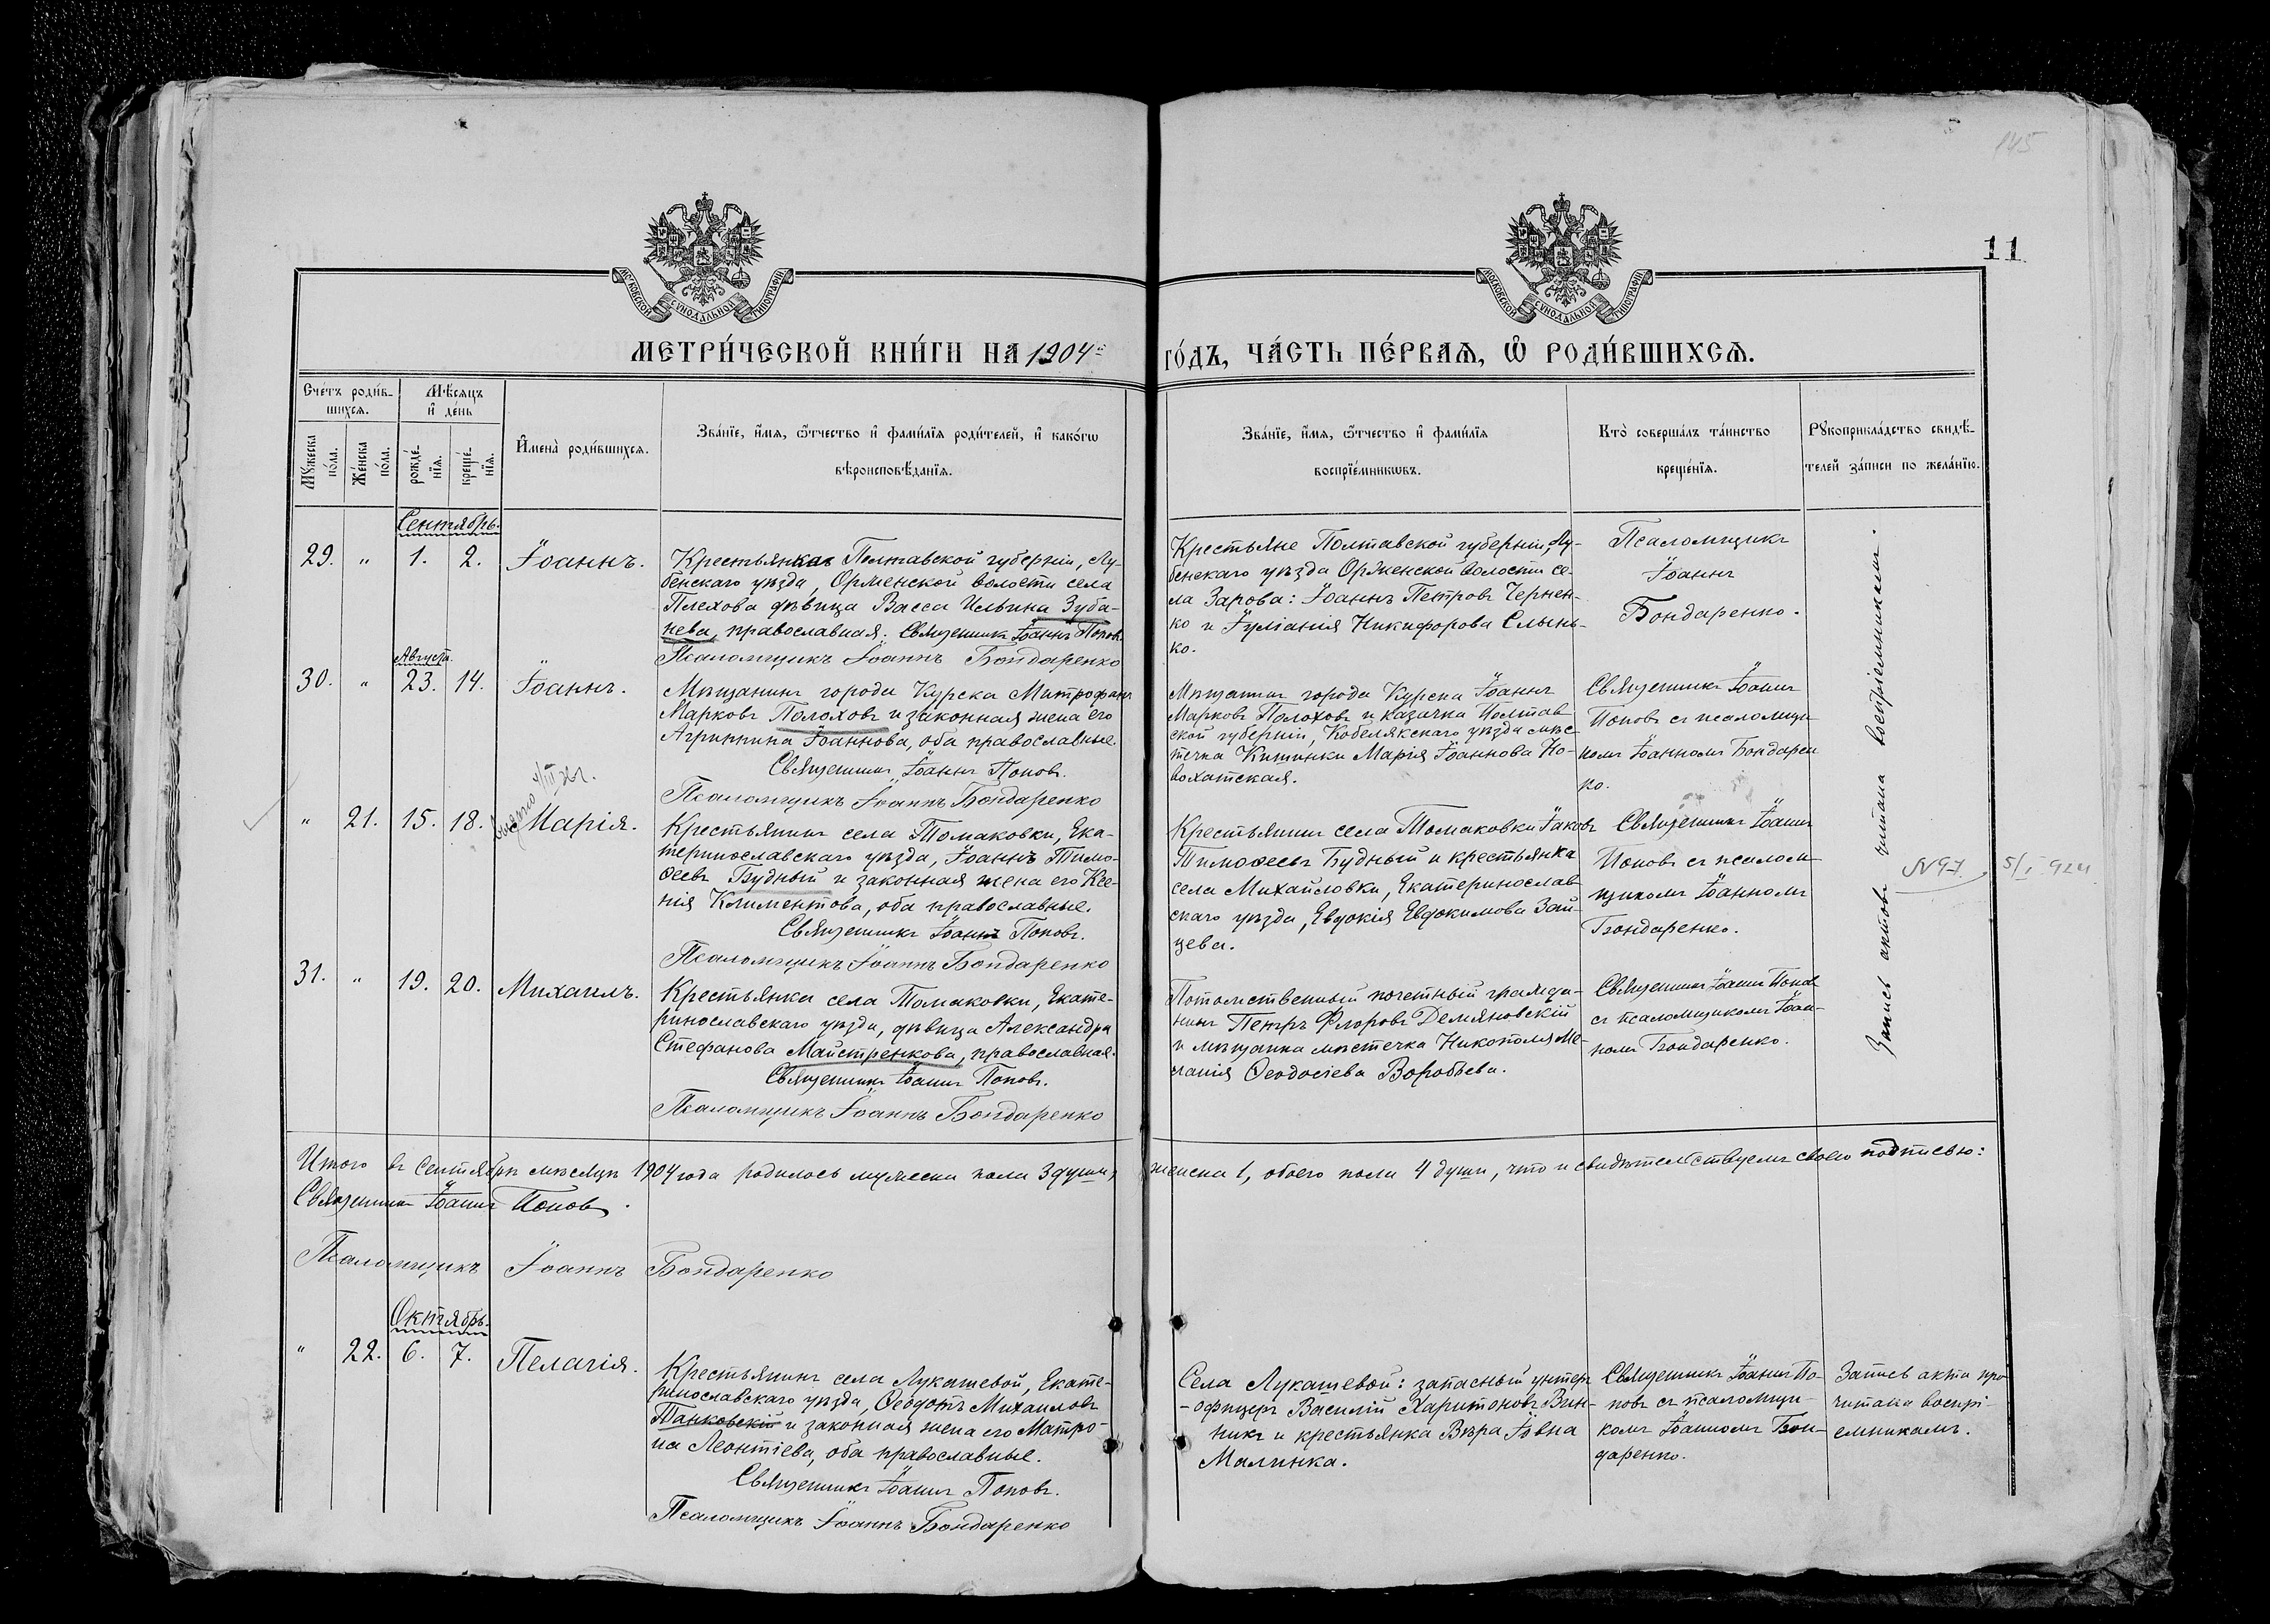 145
11
МОСКОВСКОЙ СѴНОДАЛЬНОЙ ТИПОГРАФІИ
МОСКОВСКОЙ СѴНОДАЛЬНОЙ ТИПОГРАФІИ
МЕТРИ́ЧЕСКОЙ КНИ́ГИ НА 1904й
ГО́ДЪ, ЧА́СТЬ ПЕ́РВАѦ, Ѡ҆ РОДИ́ВШИХСѦ.
Сче́тъ роди́в-
шихсѧ.
Мѣ́сѧцъ
и҆ де́нь
Мꙋ́жеска
по́ла.
Же́нска
по́ла.
рожде́-
нїѧ.
креще́-
нїѧ.
И҆мена̀ роди́вшихсѧ.
Зва́нїе, и҆́мѧ, ѻ҆́тчество и҆ фами́лїѧ роди́телей, и҆ како́гѡ
вѣроисповѣ́данїѧ.
Зва́нїе, и҆́мѧ, ѻ҆́тчество и҆ фами́лїѧ
воспрїе́мникѡвъ.
Кто̀ соверша́лъ та́инство
креще́нїѧ.
Рꙋкоприкла́дство свидѣ́-
телей за́писи по жела́нїю.
Сентябрь.
29. " 1. 2. Іоаннъ.
Крестьянка Полтавской губерніи, Лу-
бенскаго уѣзда, Орженской волости села
Плехова дѣвица Васса Ильина Зуба-
нева, православная. Священникъ Іоаннъ Поповъ
Псаломщикъ Іоаннъ Бондаренко
Крестьяне Полтавской губерніи, Лу-
бенскаго уѣзда Орженской волости се-
ла Зарова: Іоаннъ Петровъ Чернен-
ко и Іуліанія Никифорова Слынь-
ко.
Псаломщикъ
Іоаннъ
Бондаренко.
Августа.
30. " 23. 14. Іоаннъ.
Мѣщанинъ города Курска Митрофанъ
Марковъ Полоховъ и законная жена его
Агриппина Іоаннова, оба православные.
Священникъ Іоаннъ Поповъ.
Псаломщикъ Іоаннъ Бондаренко
Мѣщанинъ города Курска Іоаннъ
Марковъ Полоховъ и казачка Полтав-
ской губерніи, Кобелякскаго уѣзда мѣс-
течка Китинки Марія Іоаннова Но-
вохатская.
Священникъ Іоаннъ
Поповъ съ псаломщи-
комъ Іоанномъ Бондарен
ко.
" 21. 15. 18. Марія.
Крестьянинъ села Томаковки, Ека-
теринославскаго уѣзда, Іоаннъ Тимо-
ѳеевъ Будный и законная жена его Ксе-
нія Климентова, оба православные.
Священникъ Іоаннъ Поповъ.
Псаломщикъ Іоаннъ Бондаренко
Крестьянинъ села Томаковки Іаковъ
Тимоѳеевъ Будный и крестьянка
села Михайловки, Екатеринослав-
скаго уѣзда, Евдокія Евдокимова Зай-
цева.
Священникъ Іоаннъ
Поповъ съ псалом-
щикомъ Іоанномъ
Бондаренко.
N 97. 5/I 924
31. " 19. 20. Михаилъ.
Крестьянка села Томаковки, Екате-
ринославскаго уѣзда, дѣвица Александра
Стефанова Майстренкова, православная.
Священникъ Іоаннъ Поповъ.
Псаломщикъ Іоаннъ Бондаренко
Потомственный почетный гражда-
нинъ Петръ Флоровъ Демяновскій
и мѣщанка мѣстечка Никополя Ме-
ланія Ѳеодосіева Воробьева.
Священникъ Іоаннъ Поповъ
съ псаломщикомъ Іоан-
номъ Бондаренко.
Запись актовъ читана воспріемникамъ.
Итого въ Сентябрѣ мѣсяцѣ 1904 года родилось мужеска пола 3 души, женска 1, обоего пола 4 души, что и свидѣтельствуемъ своею подписью:
Священникъ Іоаннъ Поповъ.
Псаломщикъ Іоаннъ Бондаренко
Октябрь.
" 22. 6. 7. Пелагія.
Крестьянинъ села Лукашевой, Екате-
ринославскаго уѣзда, Ѳеодотъ Михаиловъ
Танковскій и законная жена его Матро-
на Леонтіева, оба православные.
Священникъ Іоаннъ Поповъ.
Псаломщикъ Іоаннъ Бондаренко
Села Лукашевой: запасный унтеръ
-офицеръ Василій Харитоновъ Вин-
никъ и крестьянка Вѣра Іовна
Малинка.
Священникъ Іоаннъ По-
повъ съ псаломщи-
комъ Іоанномъ Бон-
даренко.
Запись акта про
читана воспрі-
емникамъ.